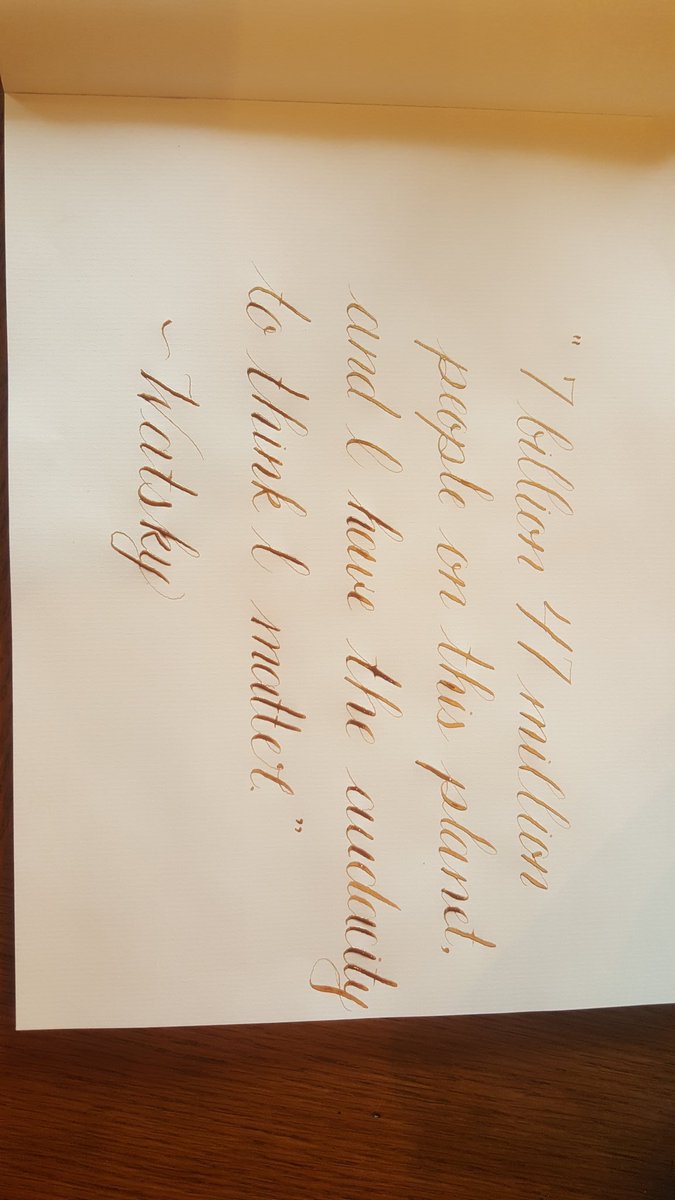 "7 billion 47 million
people on this planet,
and I have the audacity
to think I matter."
~Watsky